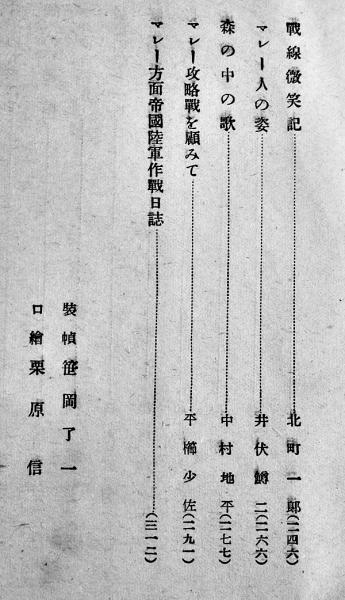 戰線微笑記………北町一郎(二四六)
マレー人の姿………井伏鱒二(二六六)
森の中の歌………中村地平(二七七)
マレー攻略戰を顧みて………平櫛少佐(二九一)
マレー方面帝國陸軍作戰日誌………(三一二)
裝幀 笹岡了一
口繪 栗原信